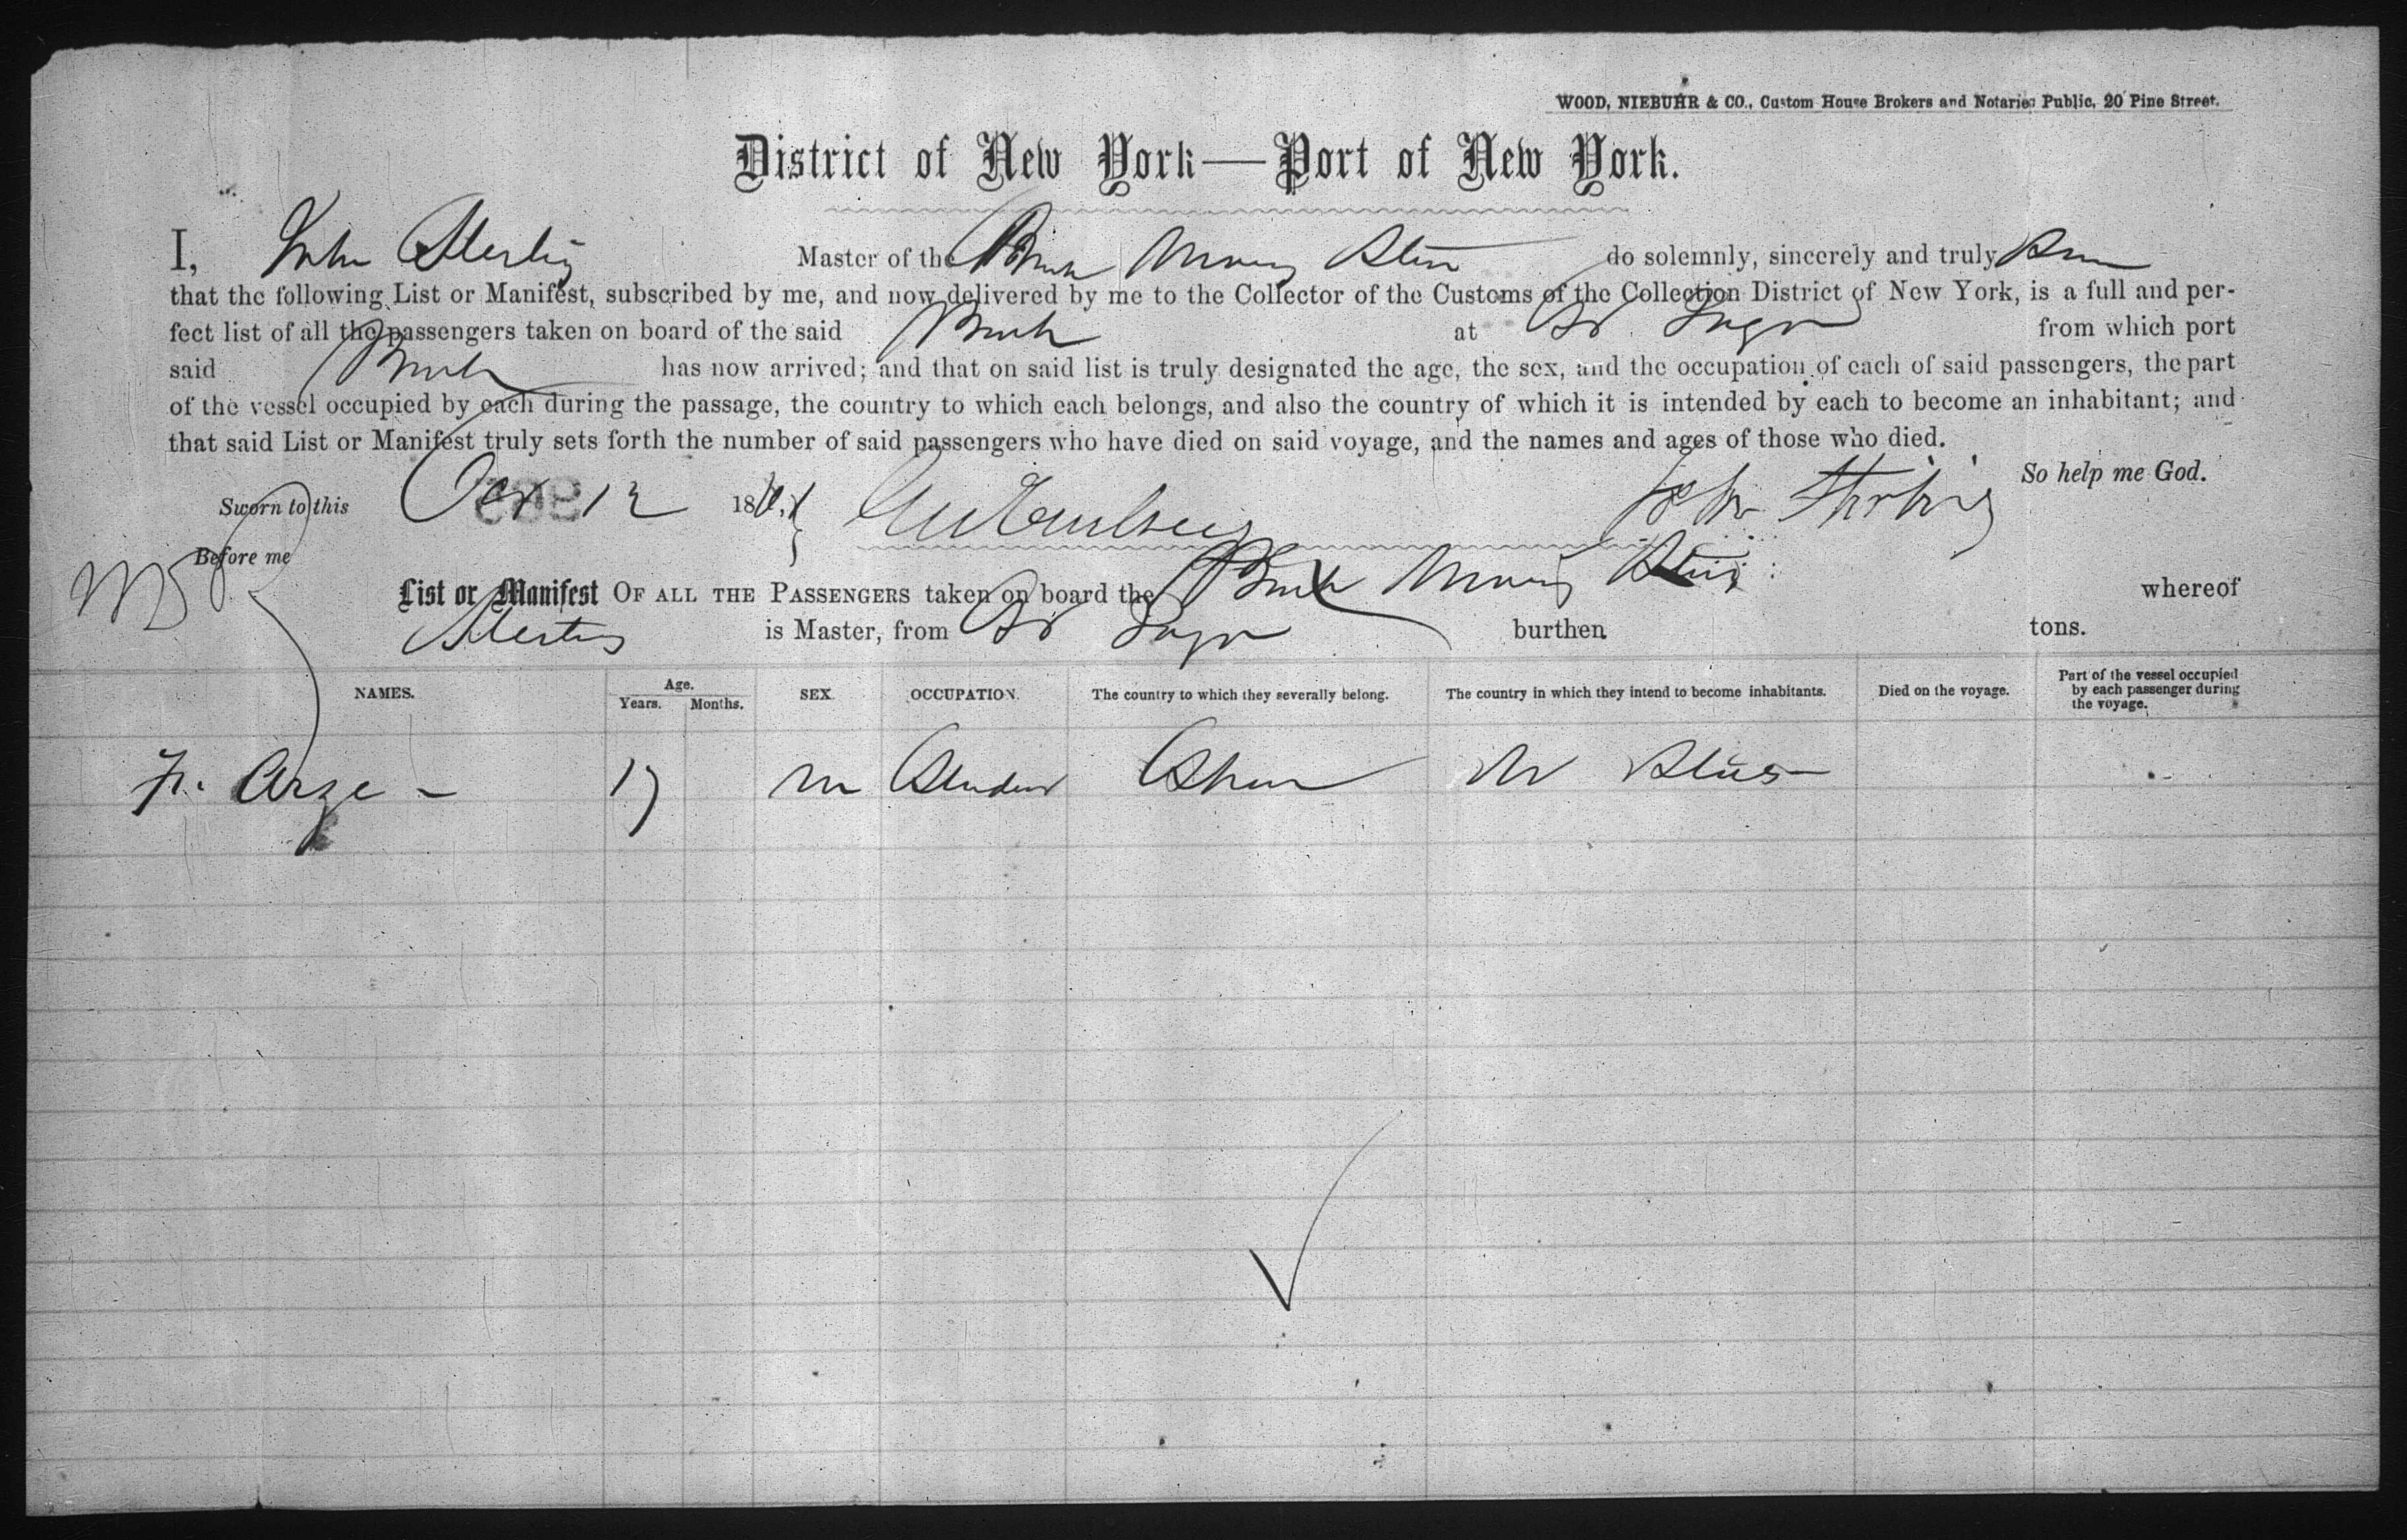 WOOD, NIEBUHR & CO., Custom House Brokers and Notaries Public, 20 Pine Street.
District of New York—Port of New York.
I, John Sterling Master of the do solemnly, sincerely and truly
that the following List or Manifest, subscribed by me, and now delivered by me to the Collector of the Customs of the Collection District of New York, is a full and per-
fect list of all the passengers taken on board of the said at from which port
said has now arrived; and that on said list is truly designated the age, the sex, and the occupation of each of said passengers, the part
of the vessel occupied by each during the passage, the country to which each belongs, and also the country of which it is intended by each to become an inhabitant; and
that said List or Manifest truly sets forth the number of said passengers who have died on said voyage, and the names and ages of those who died.
So help me God.
Sworn to this Oct 12 18 John Sterling
Before me
List or Manifest OF ALL THE PASSENGERS taken on board the whereof
Sterling is Master, from burthen tons.
NAMES. Age. Years. Months. SEX. OCCUPATION. The country to which they severally belong. The country in which they intend to become inhabitants. Died on the voyage. Part of the vessel occupied by each passenger during the voyage.
Fr. Arze - 17 m Student